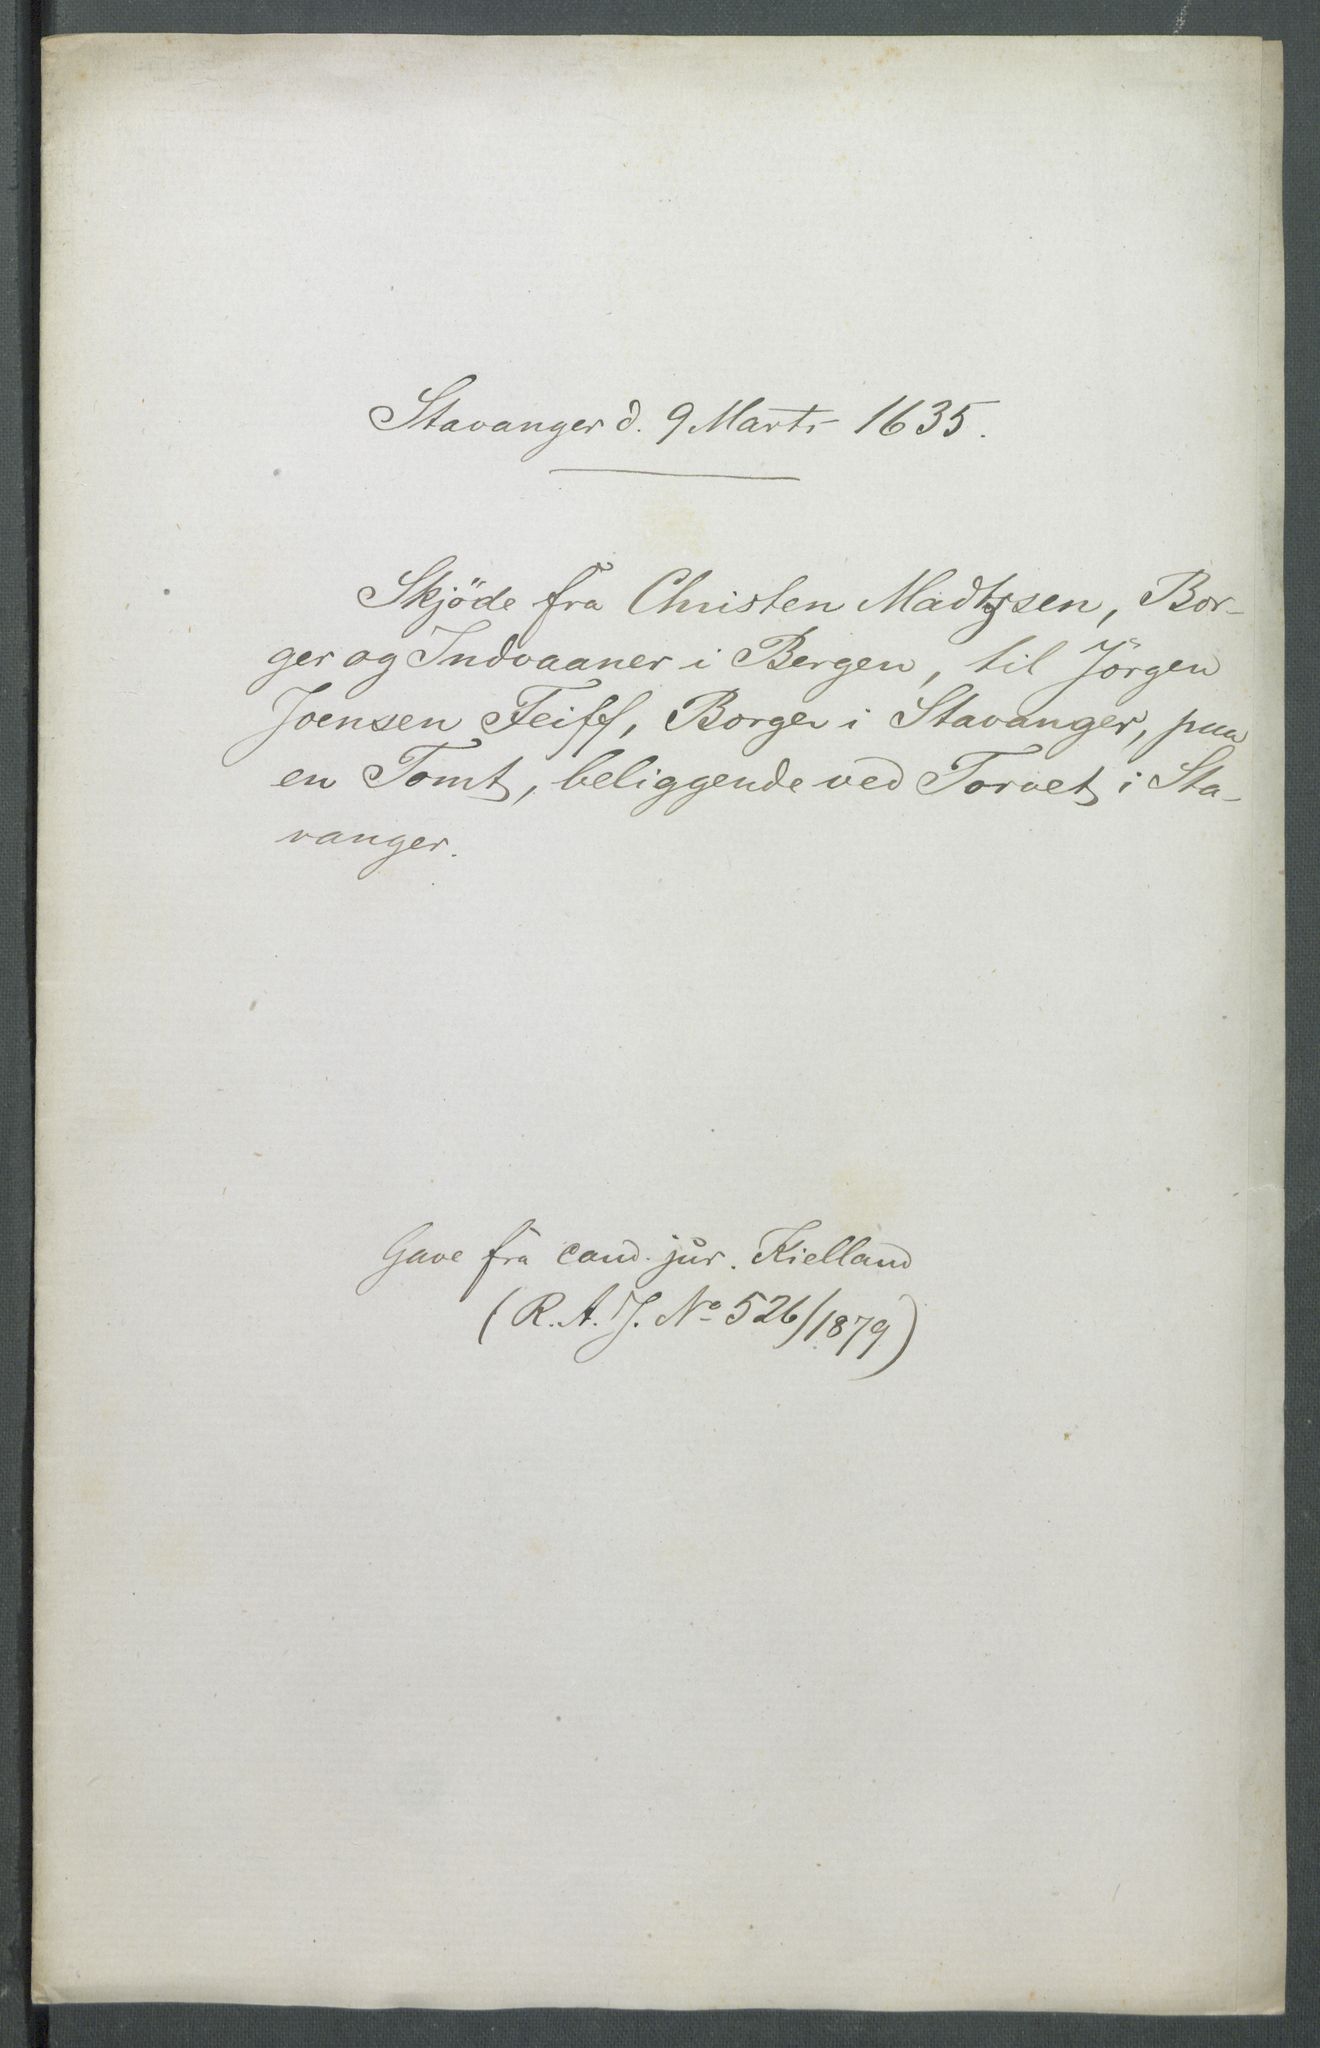 Stavanger d. 9 Marts 1635.
Skjöde fra Christen Madtzsen, Bor-
ger og Indvaaner i Bergen, til Jörgen
Joensen Feiff, Borger i Stavanger, paa
en Tomt, beliggende ved Torvet i Sta-
vanger.
Gave fra cand. jur. Kielland
(R. A. J. No 526/1879)